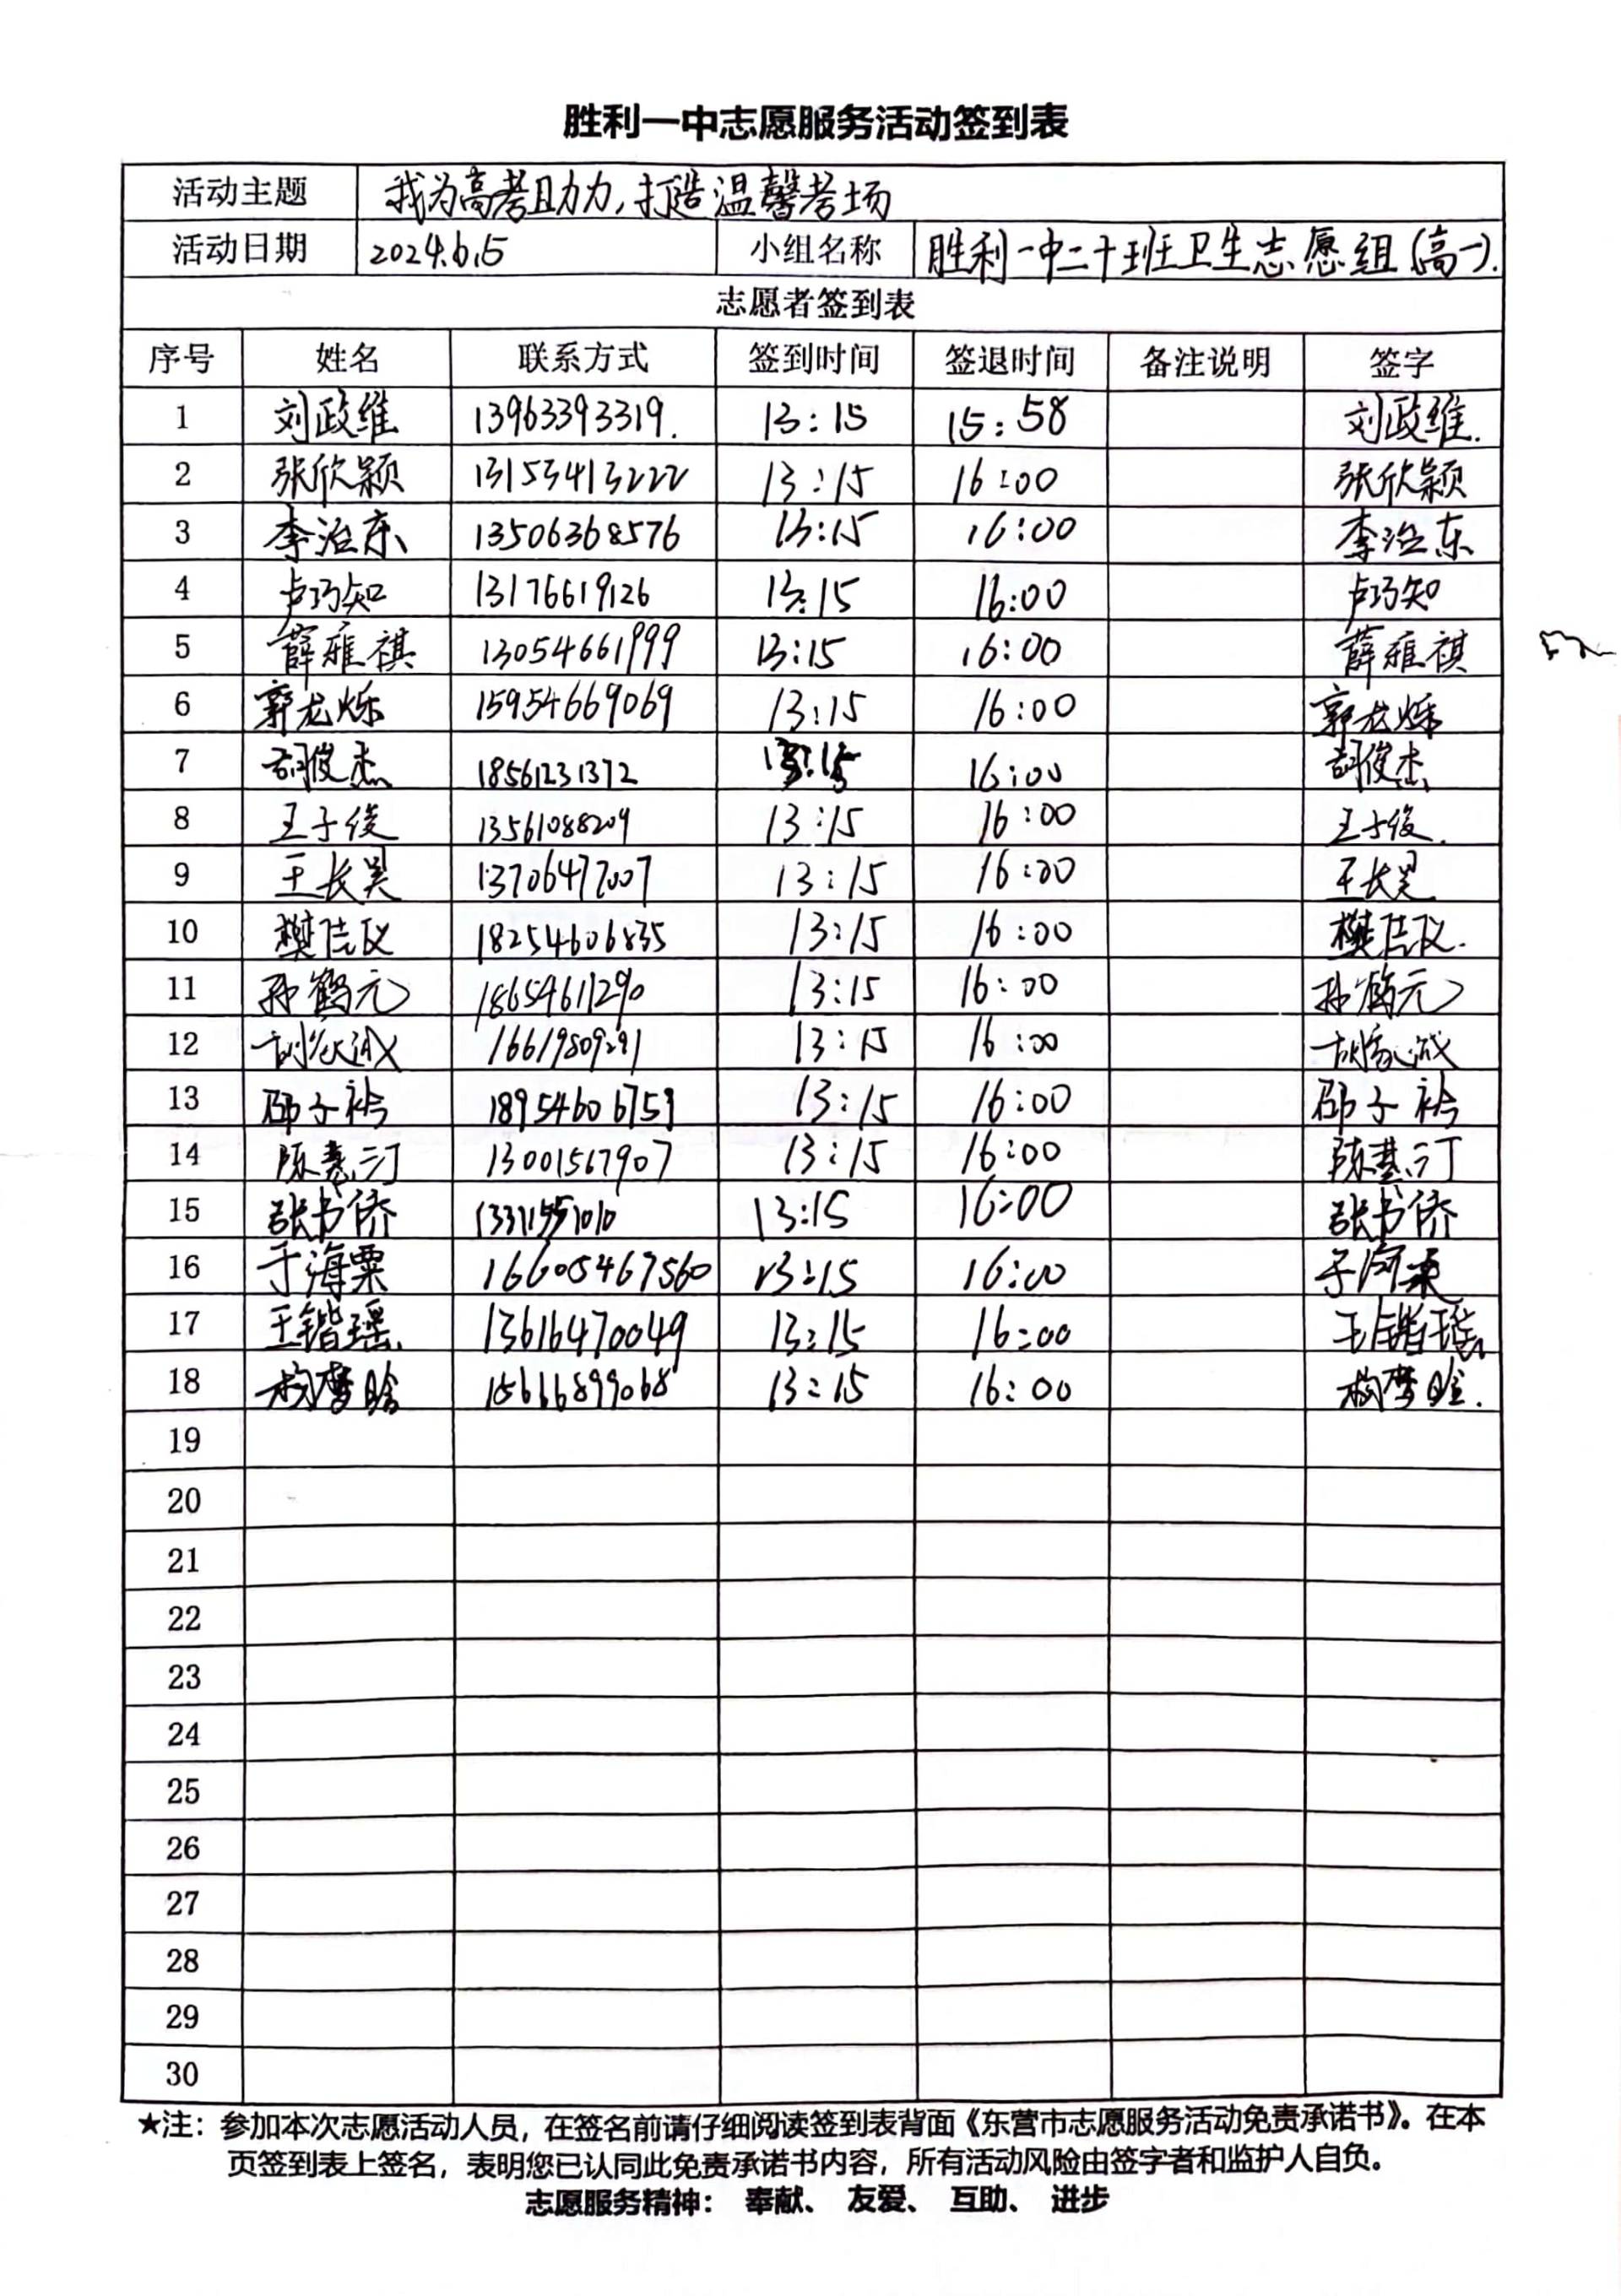 胜利一中志愿服务活动签到表
活动主题 我为高考助力,打造温馨考场
活动日期 2024.6.5 小组名称 胜利一中二十班卫生志愿组(高一).
志愿者签到表
序号 姓名 联系方式 签到时间 签退时间 备注说明 签字
1 刘政维 13963393319. 13:15 15:58 刘政维.
2 张欣颖 13153413222 13:15 16:00 张欣颖
3 李治东 13506368576 13:15 16:00 李治东
4 卢巧知 13176619126 13:15 16:00 卢巧知
5 薛雅祺 13054661999 13:15 16:00 薛雅祺
6 郭龙烁 15954669069 13:15 16:00 郭龙烁
7 胡俊杰 18561231372 13:15 16:00 胡俊杰
8 王子俊 13561088209 13:15 16:00 王子俊.
9 王长昊 13706477007 13:15 16:00 王长昊
10 樊佳仪 18254606835 13:15 16:00 樊佳仪.
11 孙鹤元 18654611290 13:15 16:00 孙鹤元
12 13:15 16:00
13 邵子衿 18954606759 13:15 16:00 邵子衿
14 13001567907 13:15 16:00
15 张书侨 13:15 16:00 张书侨
16 于海粟 166005467560 13:15 16:00 于海粟
17 王锴瑶 13616470049 13:15 16:00 王锴瑶
18 15666899068 13:15 16:00
19
20
21
22
23
24
25
26
27
28
29
30
★注：参加本次志愿活动人员，在签名前请仔细阅读签到表背面《东营市志愿服务活动免责承诺书》。在本
页签到表上签名，表明您已认同此免责承诺书内容，所有活动风险由签字者和监护人自负。
志愿服务精神： 奉献、 友爱、 互助、 进步